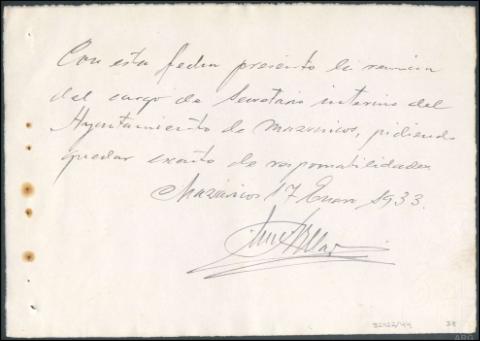 Con esta fecha presento la renuncia
del cargo de Secretario interino del
Ayuntamiento de Mazaricos, pidiendo
quedar exento de responsabilidades
Mazaricos 17 Enero 1933.
32422/44 38
ARG